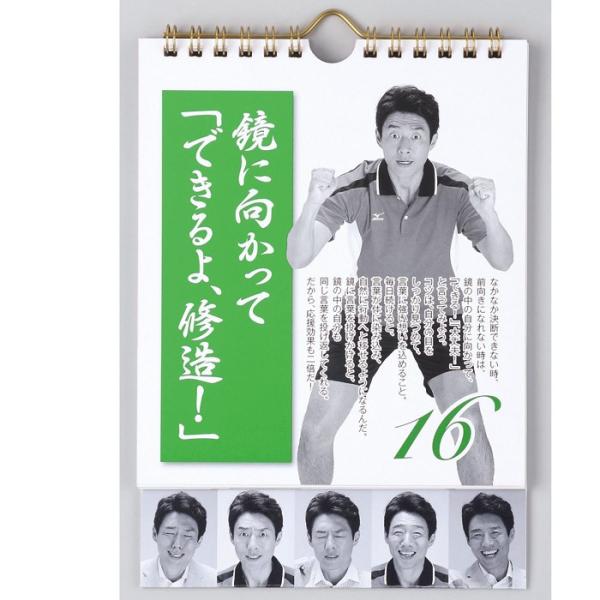 鏡に向かって
「できるよ、修造！」
なかなか決断できない時、
前向きになれない時は、
鏡の中の自分に向かって、
「できる！」「大丈夫！」
と言ってみよう。
コツは、自分の目を
しっかり見つめて、
言葉に強い想いを込めること。
毎日続けると、
自然に行動へと移せるようになるんだ。
鏡に言葉を投げかけると、
鏡の中の自分も
同じ言葉を投げ返してくれる。
だから、応援効果も二倍だ！
16
MIZUNO